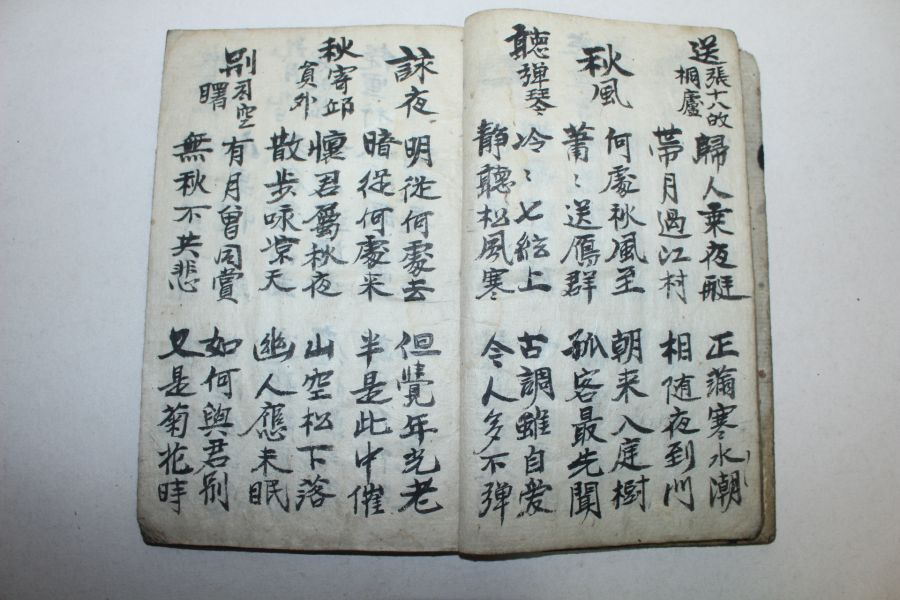 送張十八敀
桐廬
歸人乘夜艇
帶月過江村
正寒水潮
相随夜到门
秋風
何處秋風至
蕭〻送鴈群
朝來入庭樹
孤客最先聞
聽弹琴
冷〻七絃上
静聽松風寒
古調雖自爱
今人多不弹
詠夜
明從何處去
暗從何處来
但覺年光老
半是此中催
秋寄邱
員外
懷君屬秋夜
散步咏凉天
山空松下落
幽人應未眠
别司空
曙
有月曾同賞
無秋不共悲
如何與君别
又是菊花時